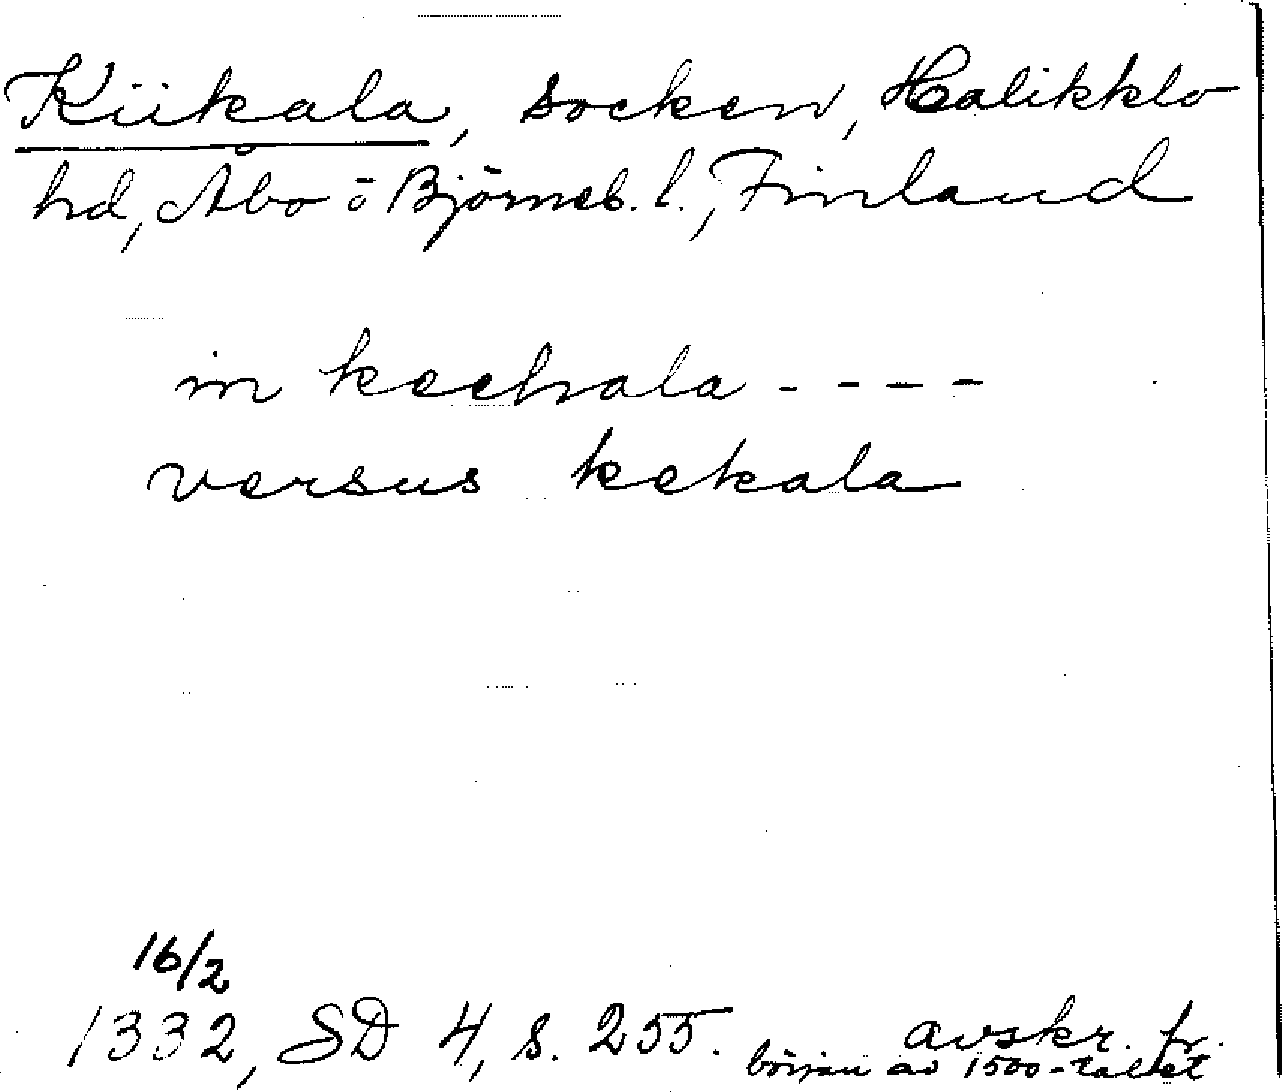 Kiikala, socken, Halikko
hd, Åbo o Björneb. l., Finland
in kechala - - - -
versus kekala
16/2
1332, SD 4, s. 255. avskr. fr.
början av 1500-talet